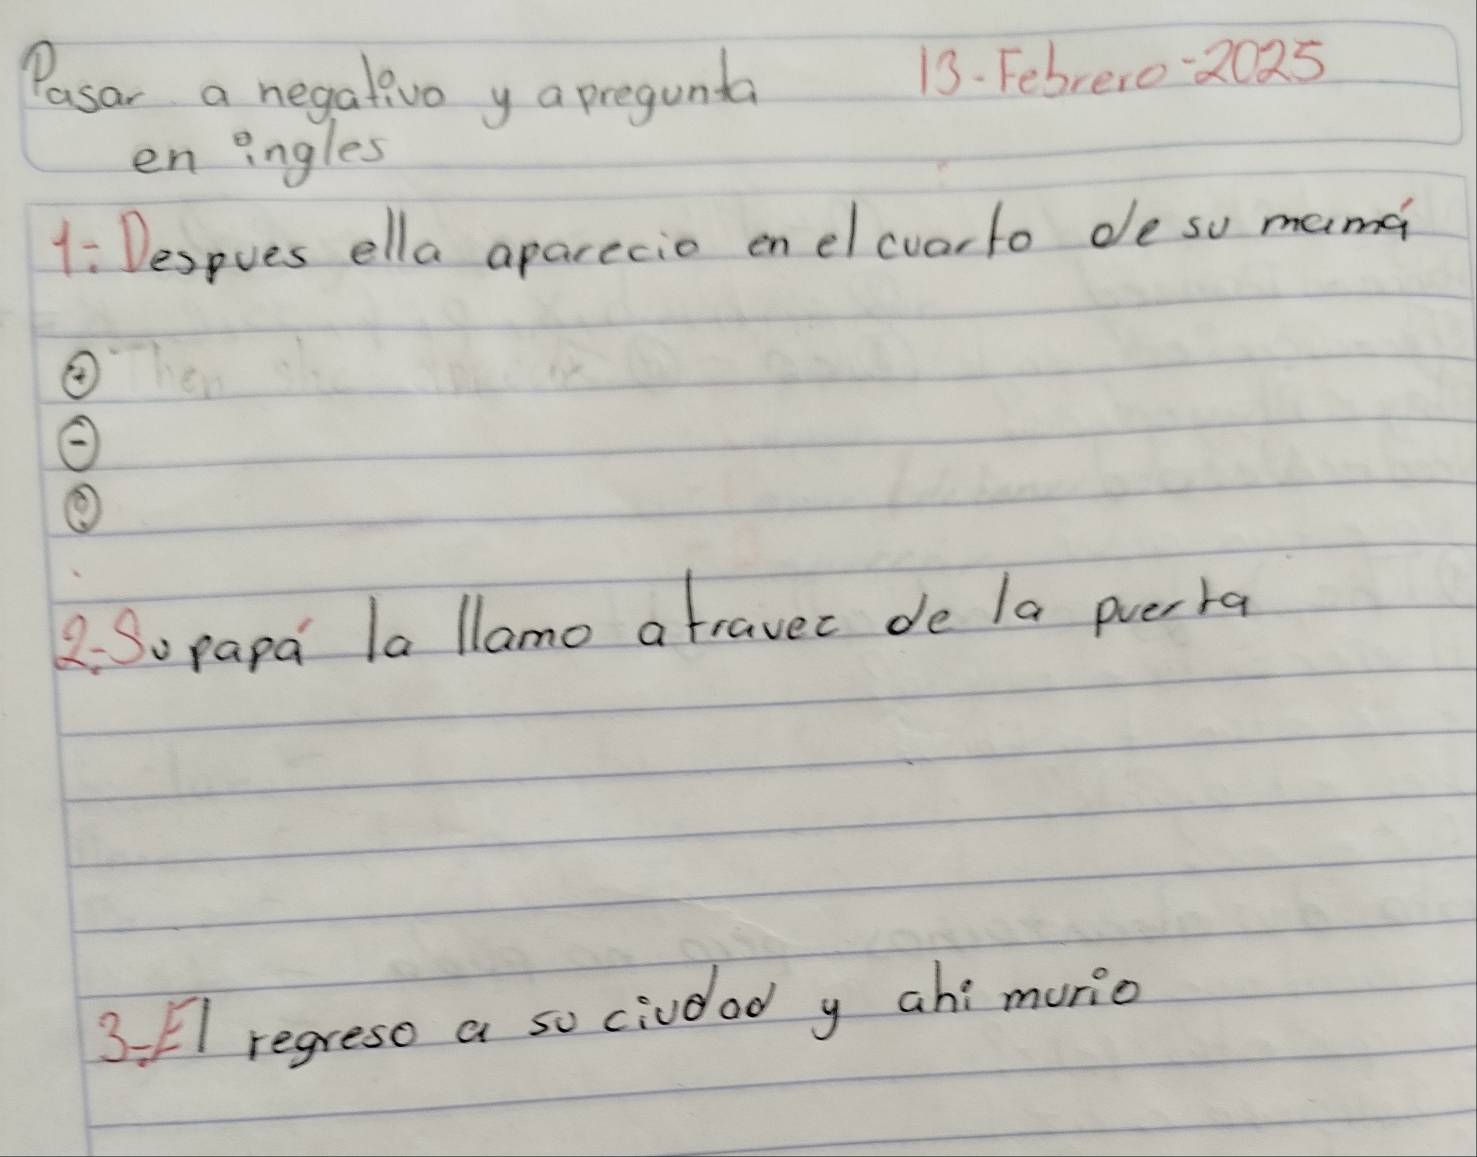 Pasar a negativo y a pregunta 13-Febrero-2025
en ingles
1-Despues ella aparecio en el cuarto de su mamá
+ Then
-
?
2-Su papá la llamo a travez de la puerta
3-El regreso a su ciudad y ahi murio